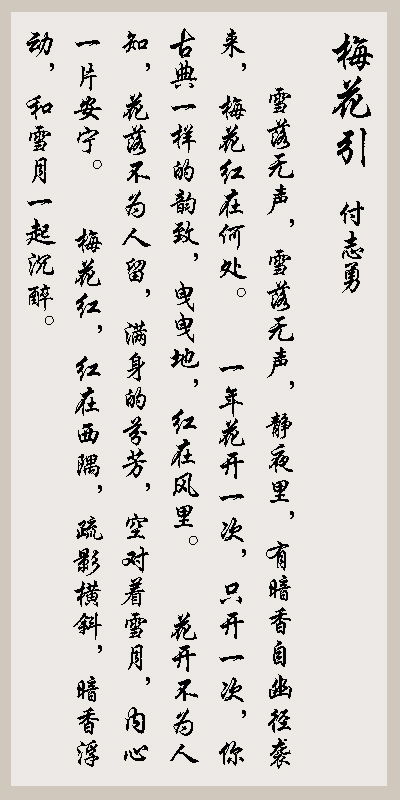 梅花引 付志勇
雪落无声，雪落无声，静夜里，有暗香自幽径袭
来，梅花红在何处。 一年花开一次，只开一次，你
古典一样的韵致，曳曳地，红在风里。 花开不为人
知，花落不为人留，满身的芬芳，空对着雪月，内心
一片安宁。 梅花红，红在西隅，疏影横斜，暗香浮
动，和雪月一起沉醉。